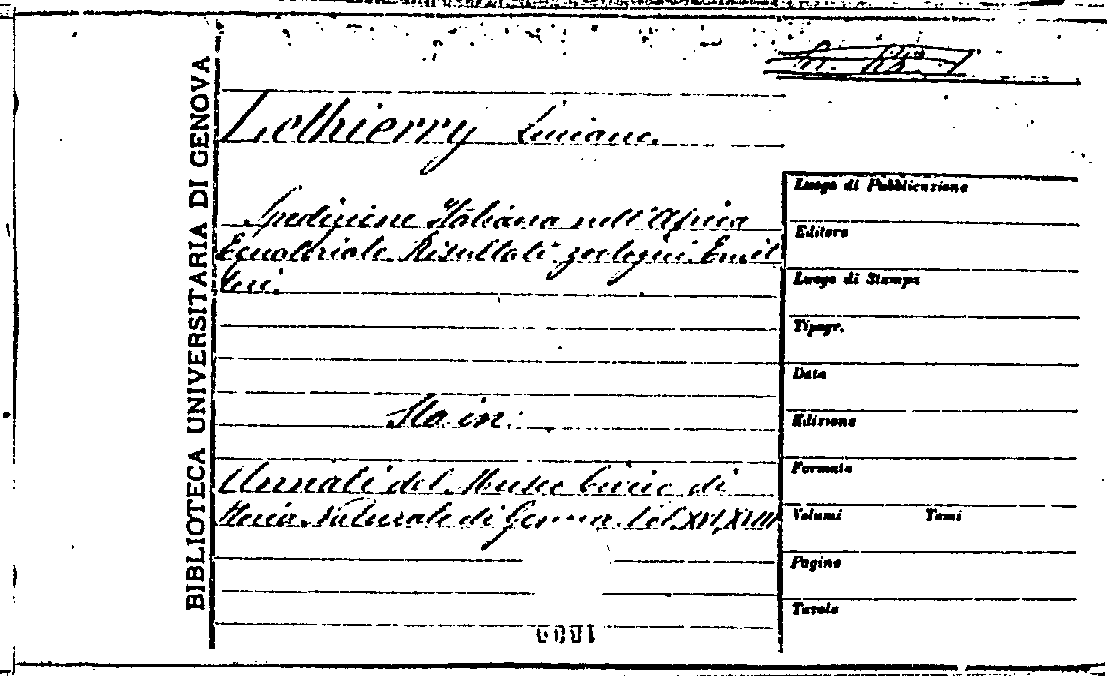 BIBLIOTECA UNIVERSITARIA DI GENOVA
Lethierry Luciano.
Spedizione Italiana nell'Africa
Equatoriale Risultati zoologici Emit
teri.
Sta in:
Annali del Museo Civico di
Storia Naturale di Genova. Vol. XVI, XVIII
Luogo di Pubblicazione
Editore
Luogo di Stampa
Tipogr.
Data
Edizione
Formato
Volumi Tomi
Pagine
Tavole